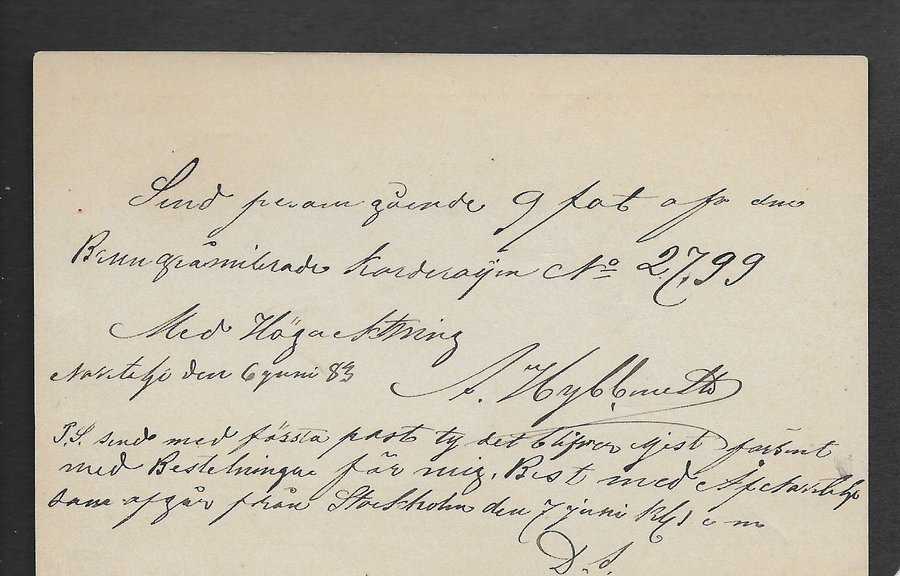 Send per om gående 9 fat af den
Brungråmilerade Korderoÿen No 2799
Med Högaktning
Norrtelje den 6 juni 83
A. Hybbinett
P.S. send med första post ty det blifver ejest försent
med Bestelningne för mig. Best med Åf Norrtelje
som afgår från Stockholm den 7 juni Kl 1 e m
D.S.